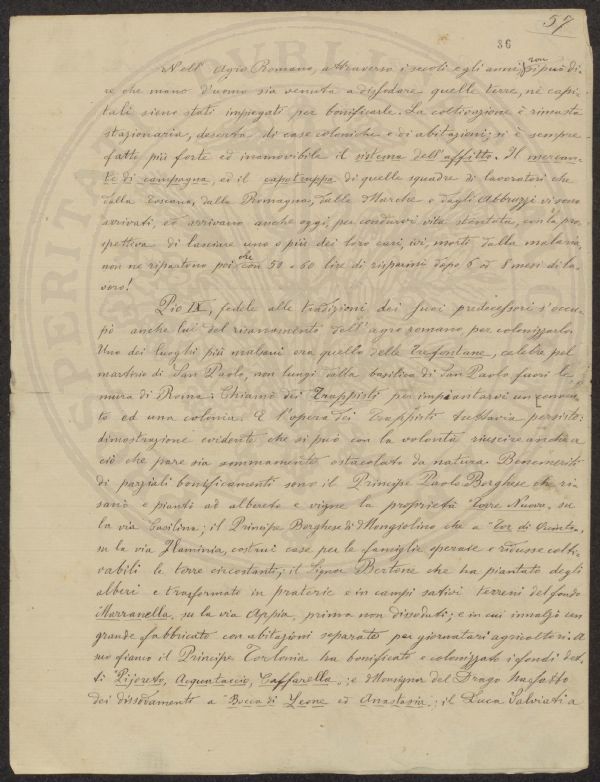 57
36
Nell' Agro Romano, attraverso i secoli e gli anni non si può di-
re che mano d'uomo sia venuta a dissodare quelle terre, nè capi-
tali sieno stati impiegati per bonificarle. La coltivazione è rimasta
stazionaria, deserta di case coloniche e di abitazioni; si è sempre
fatto più forte ed inamovibile il sistema dell'affitto. Il mercan-
te di campagna, ed il capotruppa di quelle squadre di lavoratori che
dalla Toscana, dalla Romagna, dalle Marche e dagli Abbruzzi vi sono
arrivati, ed arrivano anche oggi, per condurvi vita stentata, con la pro-
spettiva di lasciare uno o più dei loro cari, ivi, morti dalla malaria,
non ne ripartono poi che con 50 o 60 lire di risparmio dopo 6 od 8 mesi di la-
voro!
Pio IX, fedele alle tradizioni dei suoi predecessori s'occu-
pò anche lui del risanamento dell'agro romano, per colonizzarlo.
Uno dei luoghi più malsani era quello delle Trefontane, celebre pel
martirio di San Paolo, non lungi dalla basilica di San Paolo fuori le
mura di Roma. Chiamò dei Trappisti per impiantarvi un conven-
to ed una colonia. E l'opera dei Trappisti tuttavia persiste:
dimostrazione evidente che si può con la volontà riuscire anche a
ciò che pare sia sommamente ostacolato da natura. Benemeriti
di parziali bonificamenti sono il Principe Paolo Borghese che ri-
sanò e piantò ad albereto e vigne la proprietà Torre Nuova, su
la via Casilina; il Principe Borghese di Mongiolino che a Tor di Quinto,
su la via Flaminia, costruì case per le famiglie operaie e ridusse colti-
vabili le terre circostanti; il Signor Bertone che ha piantato degli
alberi e trasformato in praterie e in campi sativi terreni del fondo
Marranella, su la via Appia, prima non dissodati; e in cui innalzò un
grande fabbricato con abitazioni separate per giornatari agricoltori. A
suo fianco il Principe Torlonia ha bonificato e colonizzato i fondi det-
ti Acquataccio, Caffarella; e Monsignor del Drago ha fatto
dei dissodamenti a Bocca di Leone ed Anastasia; il Duca Salviati a